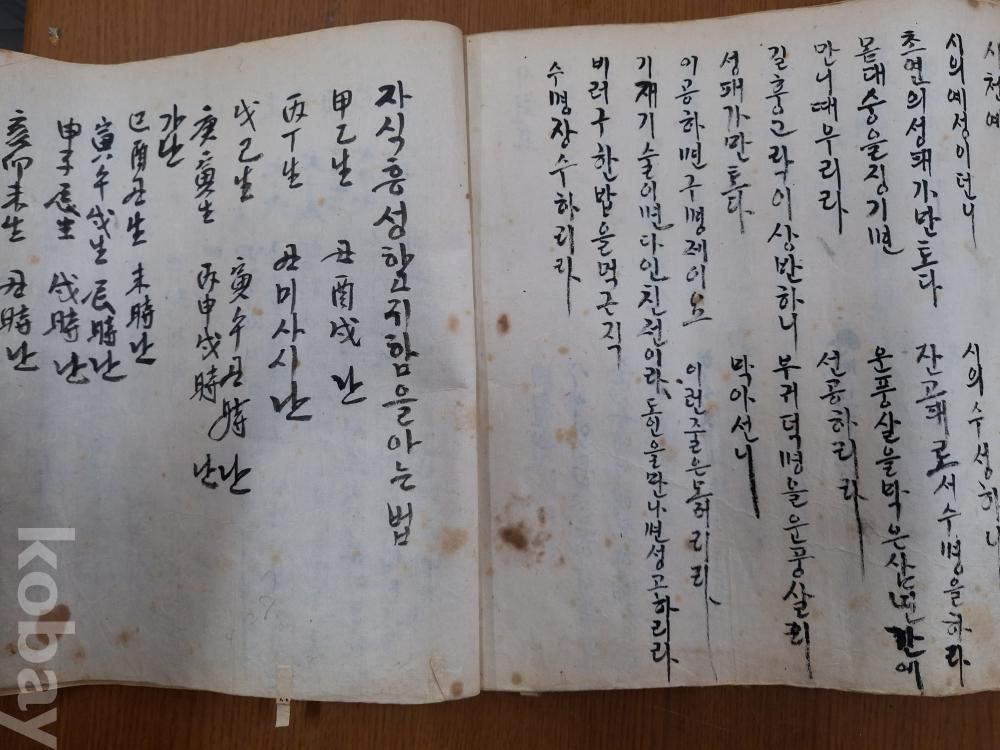 시천예
시의예성이던니 시의수성하니
초면의성패가반토다 잔고대로서수명을하라
몸대숭을징기면 운풍살을막은삼년간에
만니대부리라 선공하리라
길흉고락이상반하니 부귀덕명을운풍살리
성패가만토다 막아선니
이공하면구명제이요 이런줄은노허리라
기재기술이면다인친천이라 동인을만나면성고하리라
비러구한밥을먹근직
수명장수하리라
자식흥성할고쥐함을아는법
甲乙生 丑酉戌 난
丙丁生 丑미사시난
戊己生 寅午丑時난
庚寅生 丙申戌時난
가난
巳酉丑生 未時난
寅午戌生 辰時난
申子辰生 戌時난
亥卯未生 丑時난
kobay